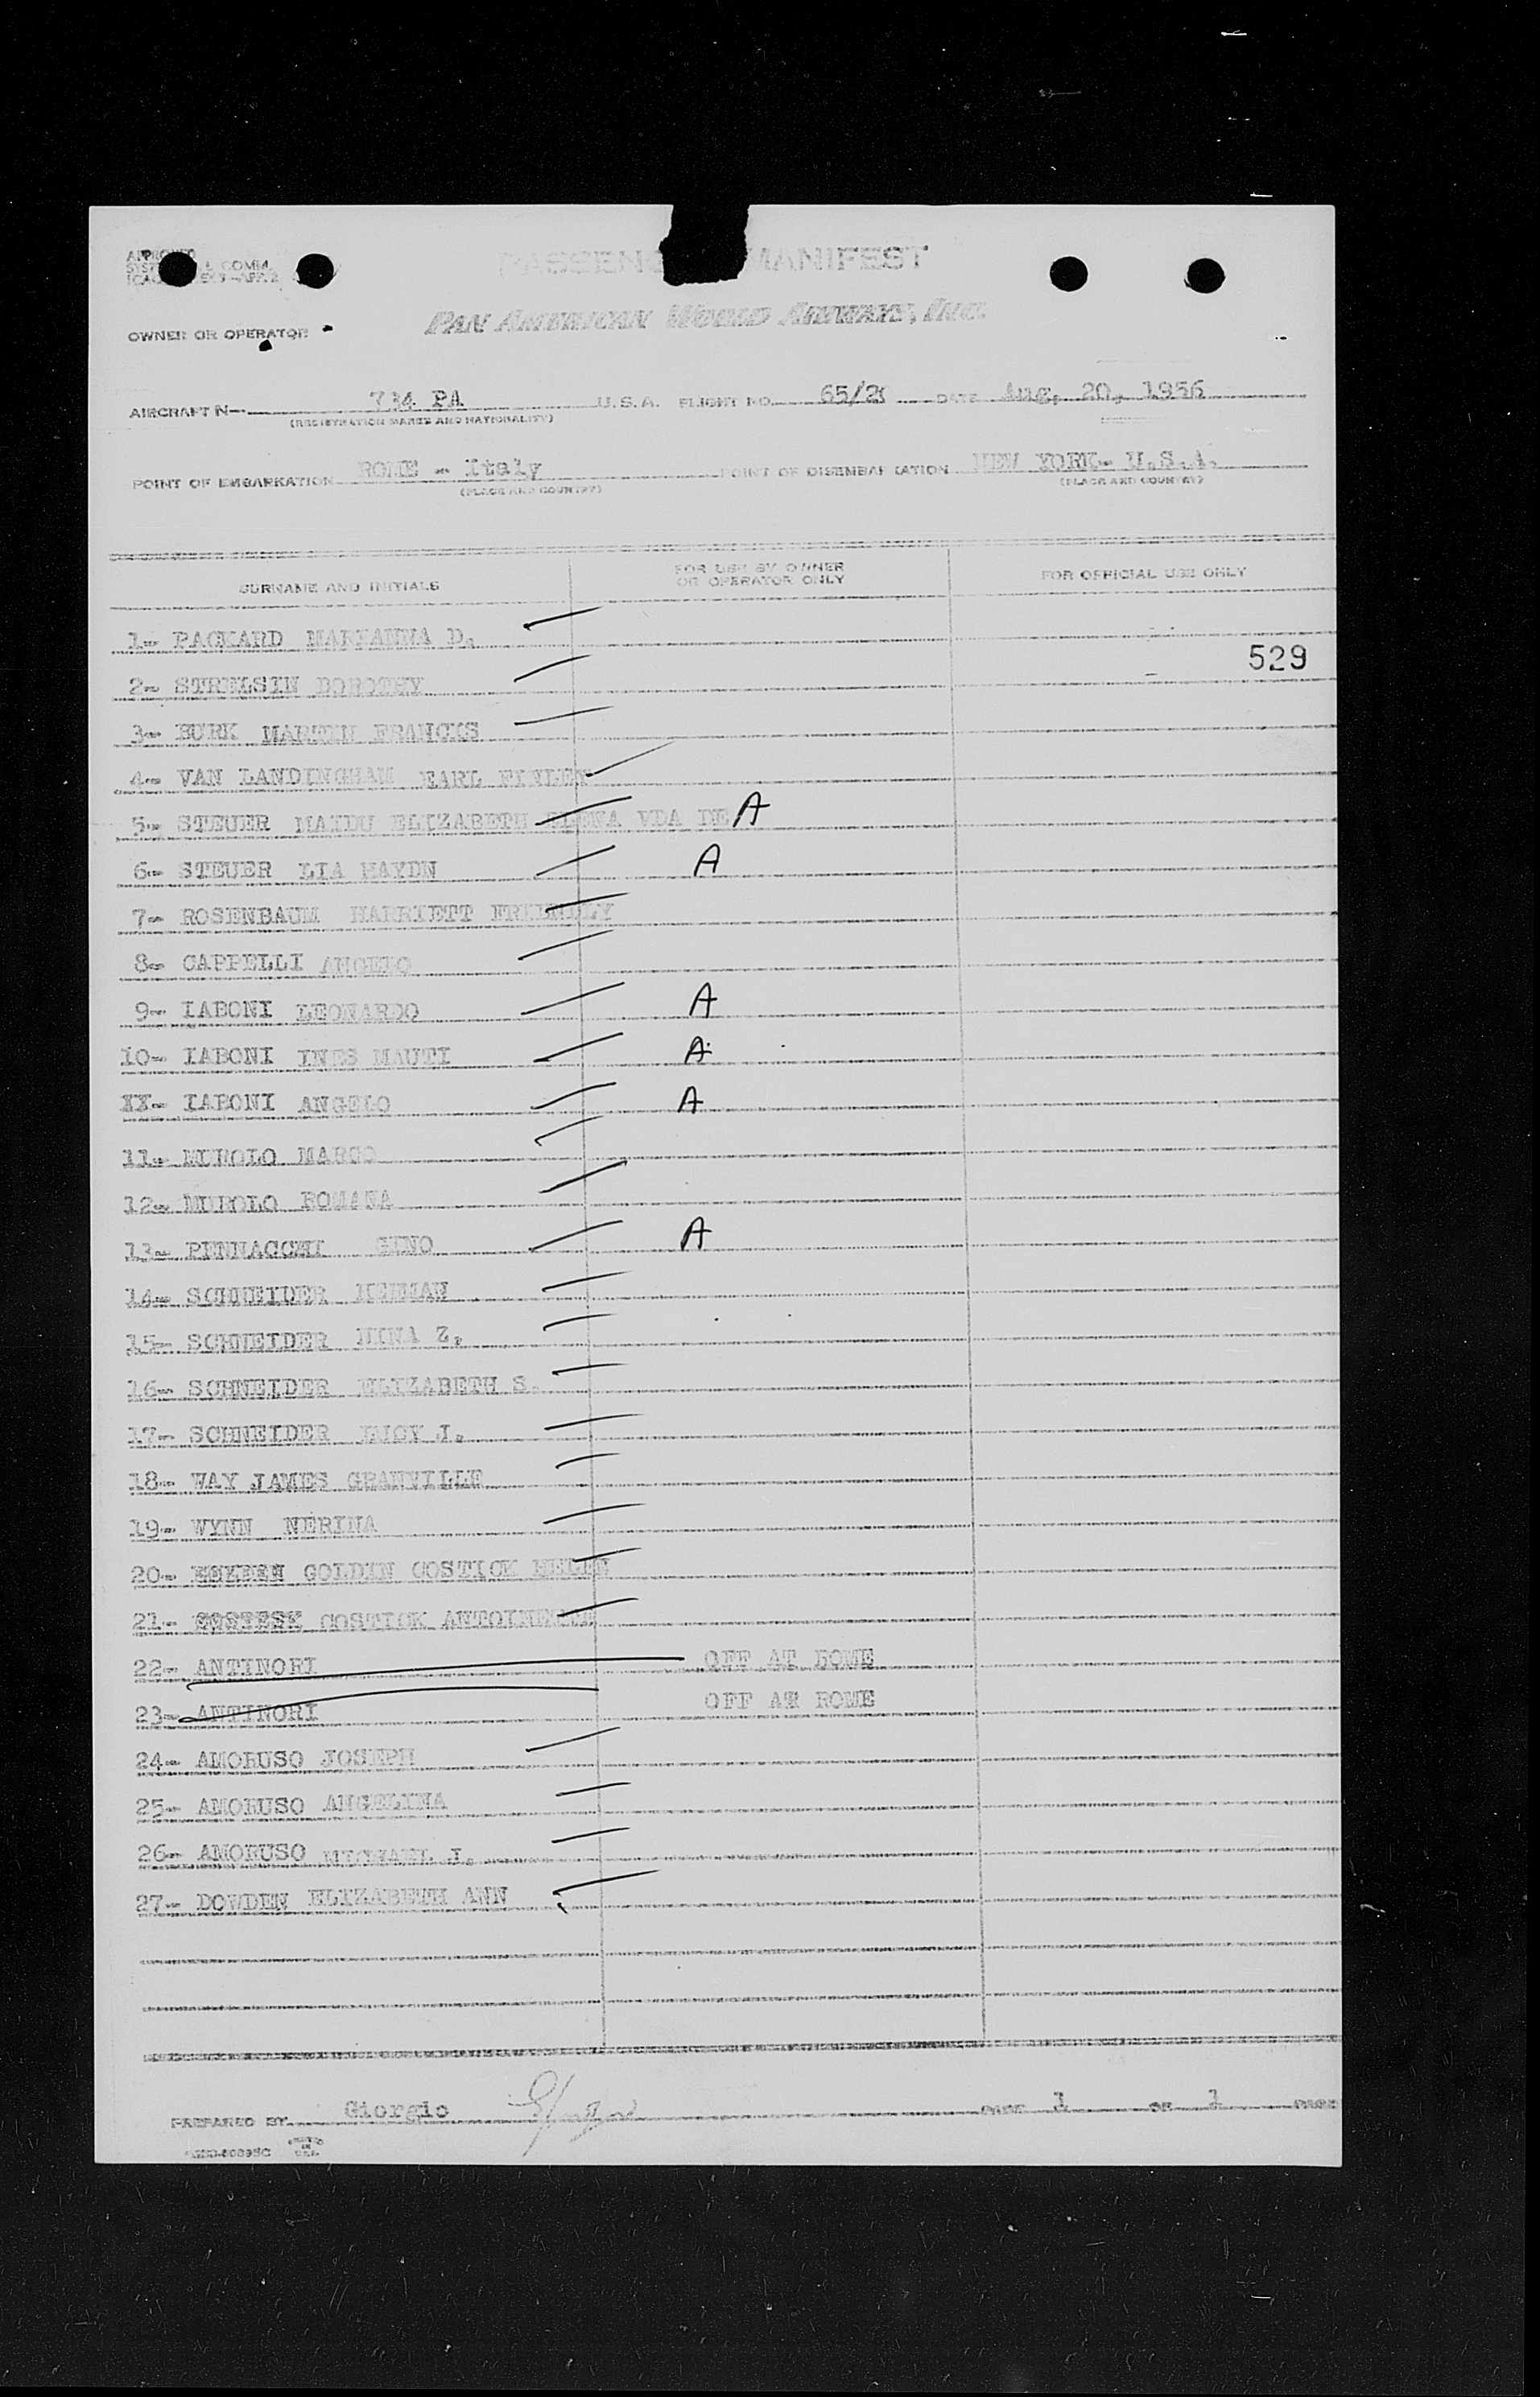 PASSENG MANIFEST
PAN AMERICAN WORLD AIRWAYS, INC.
OWNER OR OPERATOR
AIRCRAFT N- 734 PA U.S.A. FLIGHT NO. 65/2 DATE Aug. 20, 1956
(REGISTRATION MARKS AND NATIONALITY)
POINT OF EMBARKATION ROME - Italy POINT OF DISEMBARKATION NEW YORK- U.S.A.
(PLACE AND COUNTRY) (PLACE AND COUNTRY)
SURNAME AND INITIALS FOR USE BY OWNER OR OPERATOR ONLY FOR OFFICIAL USE ONLY
1- PACKARD MARYANNA D.
529
2- STRELSIN DOROTHY
3- BURK MARTIN FRANCIS
4- VAN LANDINGHAM EARL FINLEY
5- STEUER ELIZABETH VDA DE A
6- STEUER LIA HAYDN A
7- ROSENBAUM HARRIETT
8- CAPPELLI ANGELO
9- IABONI LEONARDO A
10- IABONI INES MAUTI A
XX- IABONI ANGELO A
11- MUROLO MARCO
12- MUROLO ROMANA
13- PENNACCHI GINO A
14- SCHNEIDER HERMAN
15- SCHNEIDER NINA Z.
16- SCHNEIDER ELIZABETH S.
17- SCHNEIDER LUCY J.
18- WAY JAMES GRANVILLE
19- WYNN NERINA
20- GOLDIN COSTICK HELEN
21- COSTICK ANTOINETTE
22- ANTINORI OFF AT ROME
23- ANTINORI OFF AT ROME
24- AMORUSO JOSEPH
25- AMORUSO ANGELINA
26- AMORUSO MICHAEL J.
27- DOWDEN ELIZABETH ANN
PREPARED BY Giorgio PAGE 1 OF 1 PAGES